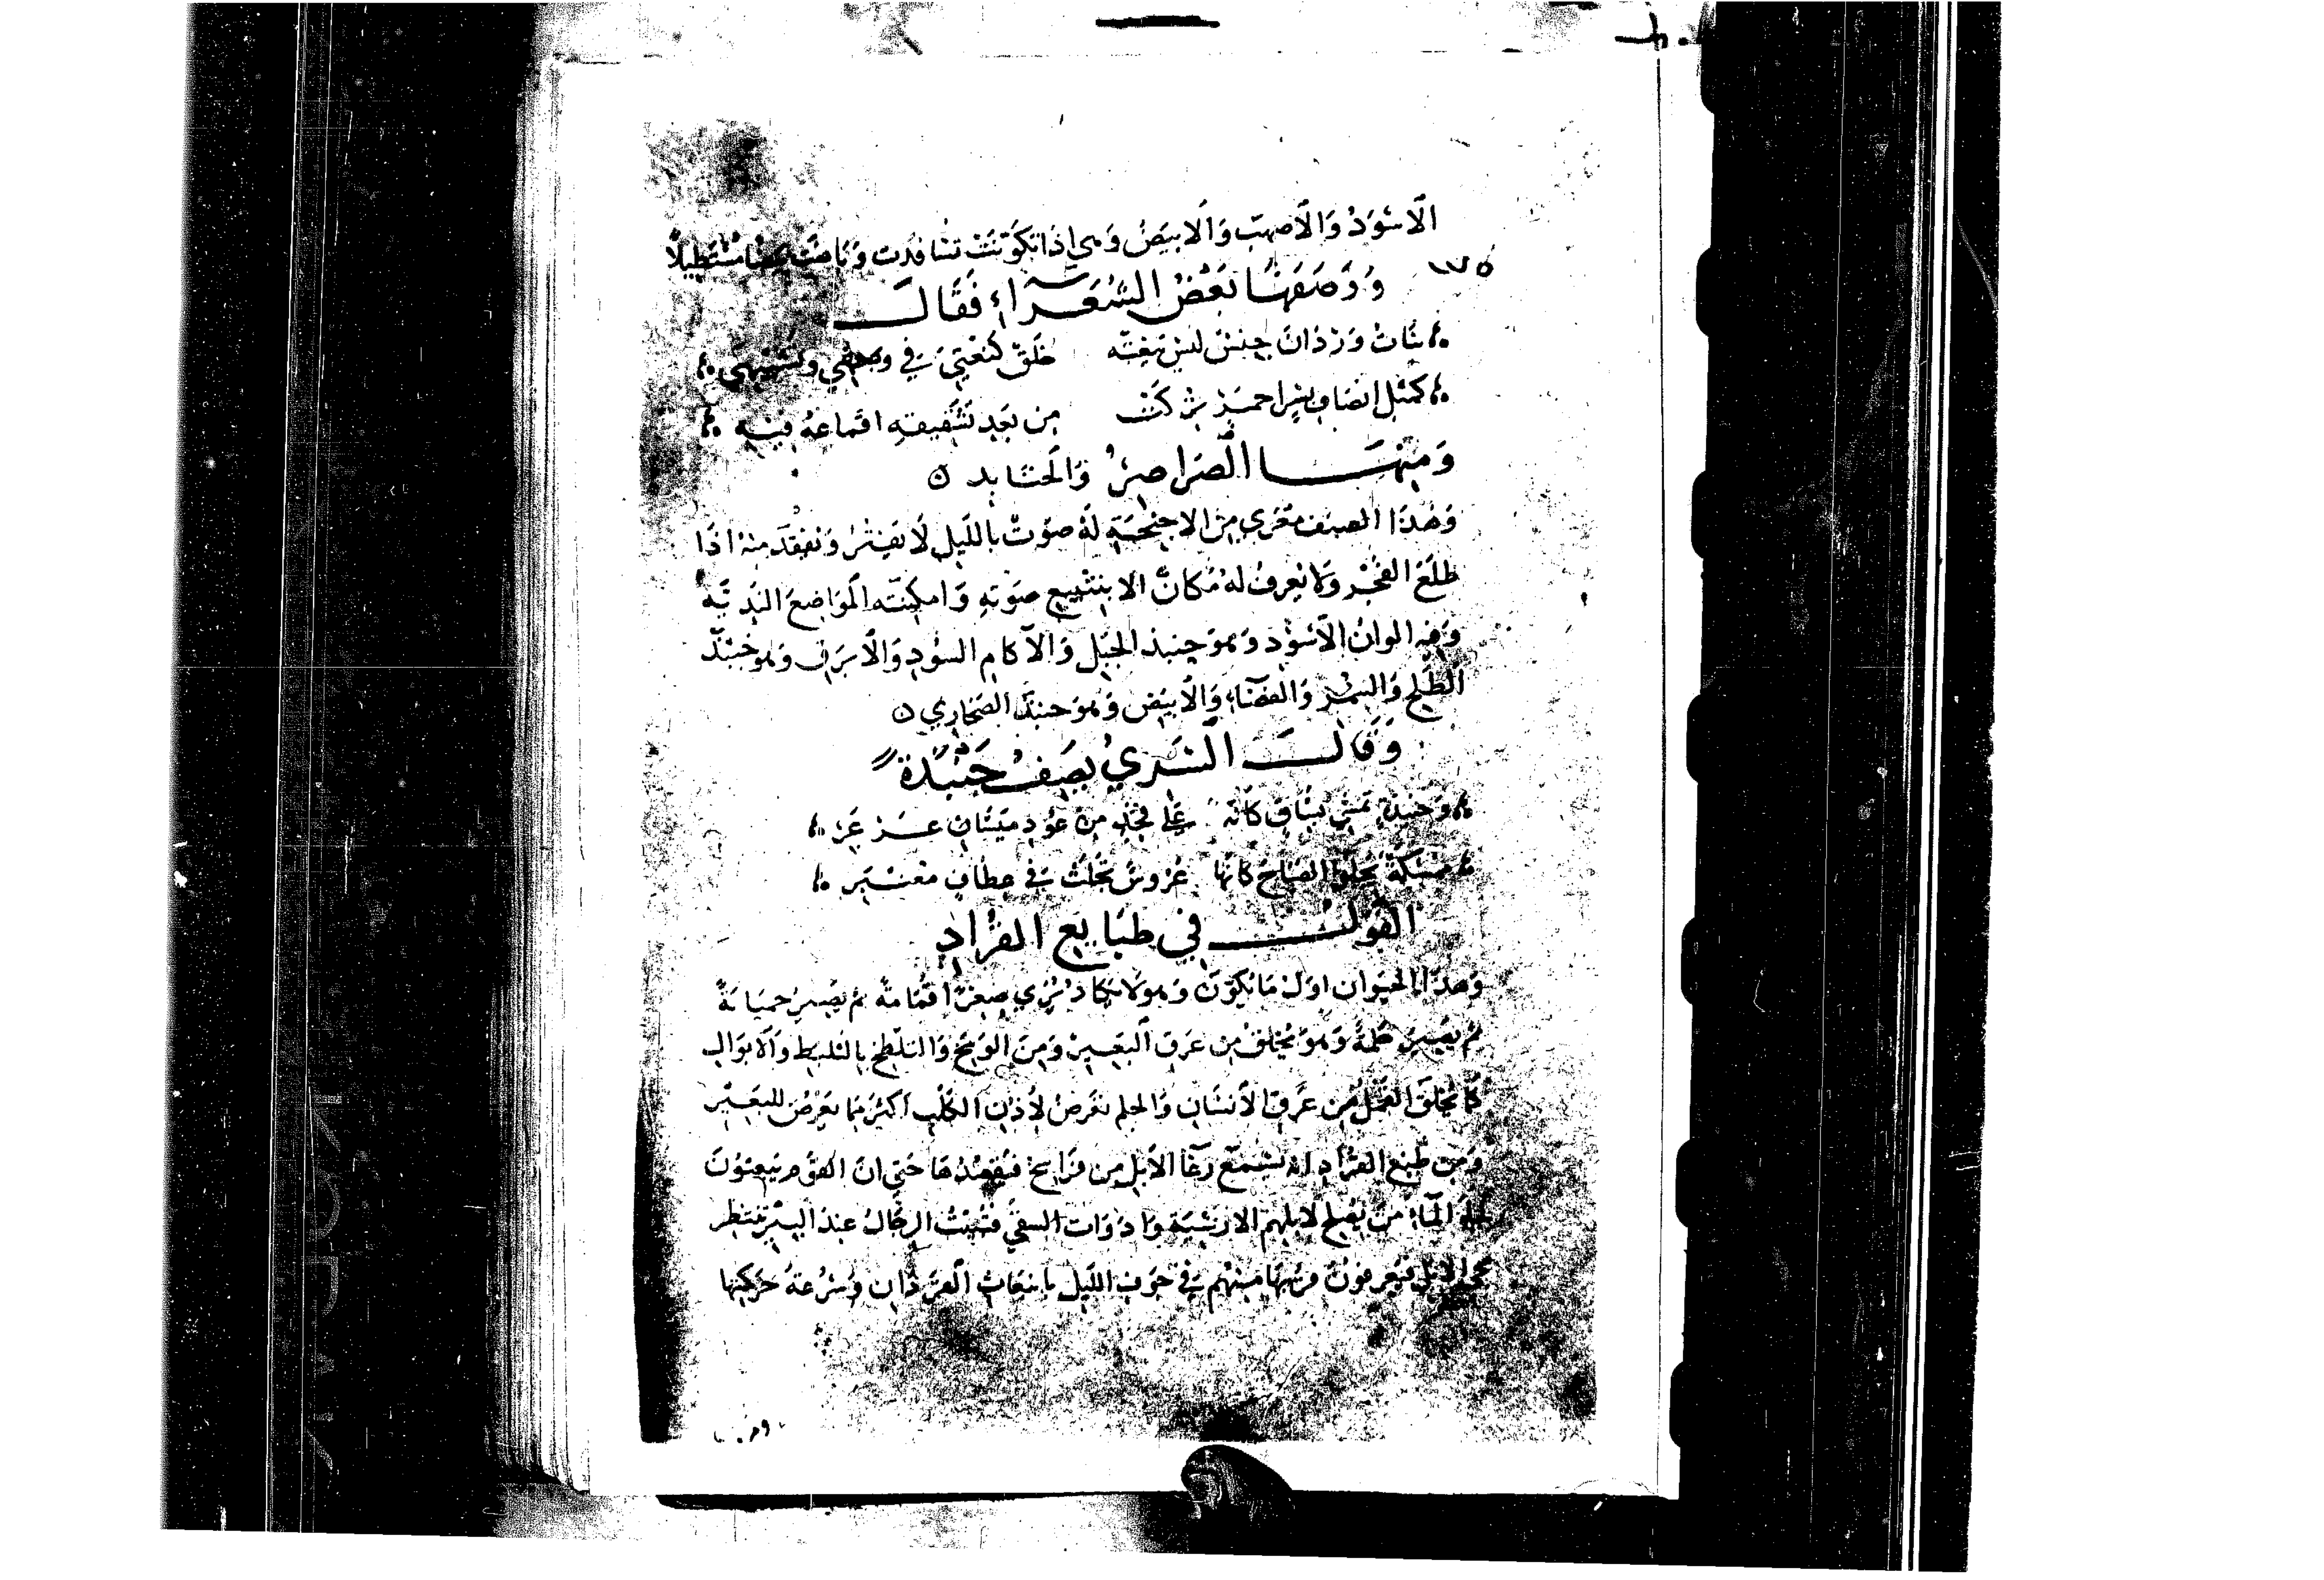 الاسود والاصهب والابيض وهي اذا تكونت تسافدت وباضت بيضا مستطيلا
١٧٥
ووصفها بعض الشعراء فقال
بنات وردان جنس ليس ينعته خلق كنعتي في وصفي وتشبيهي
كمثل انصاف بسر احمر تركت من بعد تشقيقه اقماعه فيه
ومنها الصراصر والجنادب
وهذا الصنف معرى من الاجنحة له صوت بالليل لا يفتر ويفقد منه اذا
طلع الفجر ولا يعرف له مكان الا بتتبع صوته وامكنته المواضع الندية
وفيه الوان الاسود وهو جندب الجبل والاكام السود والازرق وهو جندب
الطلح والسمر والعضاه والابيض وهو جندب الصحاري
وقال السري يصف جندبة
وجندبة تمشي بساق كانه على فخذ من عود ميسان عرعر
ممسكة تجلو الصباح كانها عروس تجلت في عطاف معنبر
القول في طبايع القراد
وهذا الحيوان اول ما يكون وهو لا يكاد يرى صغرا قمقامة ثم يصير حمنانة
ثم يصير حلمة وهو يخلق من عرق البعير ومن الوسخ والتلطخ بالثلط والابوال
كما يخلق القمل من عرق الانسان والحلم تعرض لاذن الكلب اكثر مما يعرض للبعير
ومن طبع القراد انه يسمع رغا الابل من فراسخ فيقصدها حتى ان القوم يبعثون
الى الماء من يصلح لابلهم الارشية وادوات السقي فتبيت الرجال عند البير تنتظر
مجي الابل فيعرفون قربها منهم في جوف الليل بانبعاث القردان وسرعة حركتها